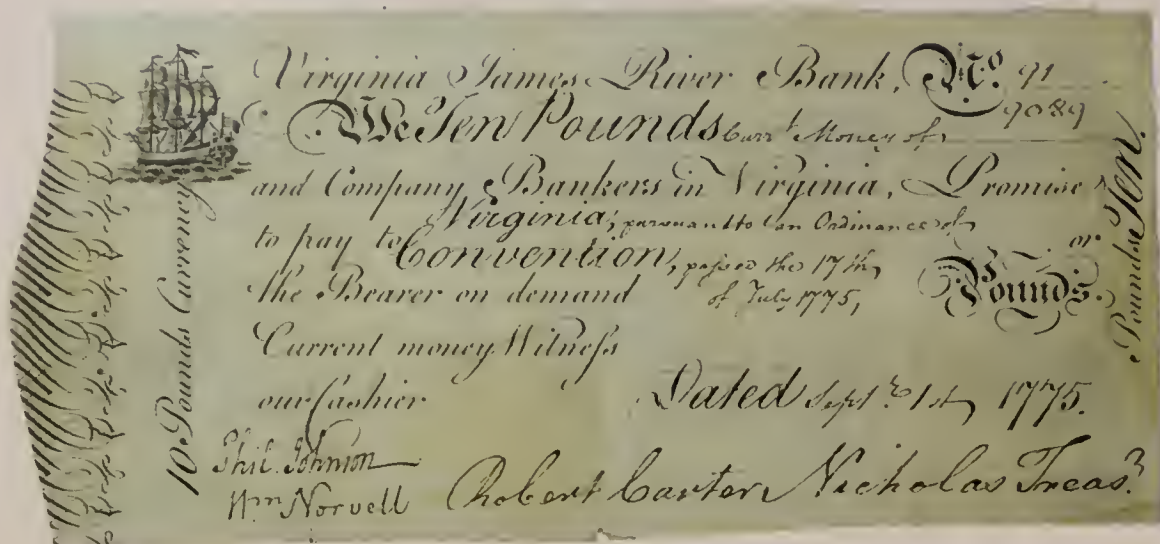 Virginia James River Bank, No. 91
9089
We Ten Pounds Curr.t Money of
and Company Bankers in Virginia, Promise
Virginia, pursuant to an Ordinance of
to pay to
Convention, passed the 17th,
or
the Bearer on demand
of July 1775,
Pounds.
Current money Witneſs
our Cashier
Dated Sept.r 1st, 1775.
Phil. Johnson
Wm Norvell
Robert Carter Nicholas Treas.r
10 Pounds Currency
Pounds Ten.